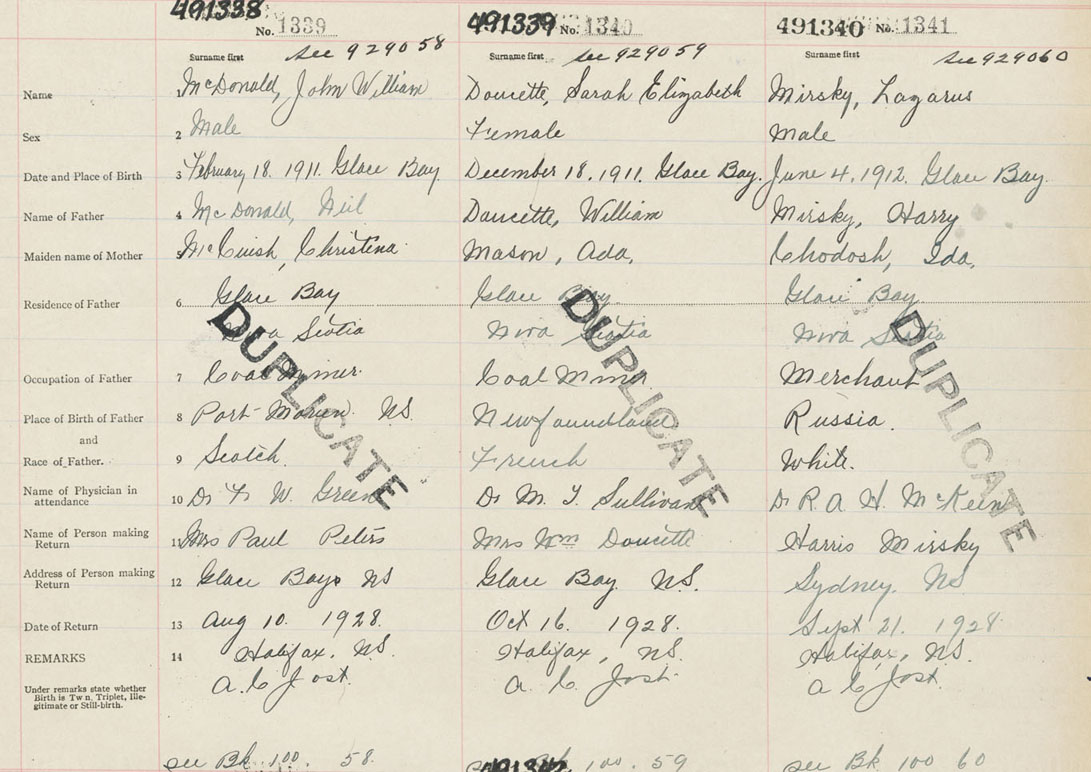 491338 No. 1339 491339 No. 1340 491340 No. 1341
Surname first see 929058 Surname first see 929059 Surname first see 929060
Name 1 McDonald, John William Doucette, Sarah Elizabeth Mirsky, Lazarus
Sex 2 Male Female Male
Date and Place of Birth 3 February 18. 1911. Glace Bay December 18, 1911. Glace Bay. June 4, 1912. Glace Bay.
Name of Father 4 McDonald, Neil Doucette, William Mirsky, Harry
Maiden name of Mother 5 McCuish, Christena Mason, Ada, Chodosh, Ida,
Residence of Father 6 Glace Bay Glace Bay Glace Bay
Nova Scotia Nova Scotia Nova Scotia
DUPLICATE DUPLICATE DUPLICATE
Occupation of Father 7 Coal Miner. Coal Miner Merchant
Place of Birth of Father 8 Port Morien NS Newfoundland Russia.
and
Race of Father. 9 Scotch. French White.
Name of Physician in attendance 10 Dr F. W. Green Dr M. T. Sullivan Dr R. A. H. McKeen
Name of Person making Return 11 Mrs Paul Peters Mrs Wm Doucette Harris Mirsky
Address of Person making Return 12 Glace Bay NS Glace Bay NS. Sydney. NS
Date of Return 13 Aug 10. 1928. Oct 16. 1928. Sept 21. 1928
REMARKS 14 Halifax, NS. Halifax, NS. Halifax, NS.
A C Jost. A. C. Jost. A C Jost.
Under remarks state whether
Birth is Twin, Triplet, Ille-
gitimate or Still-birth.
see Bk 100. 58. Bk 100. 59 see Bk 100 60